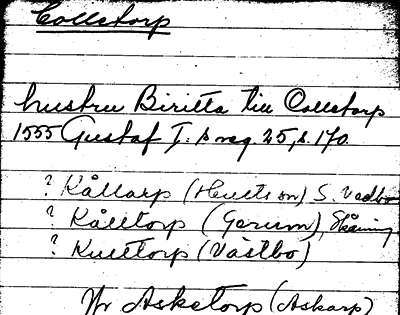 Collstorp
hustru Biritta till Collstorp
1555 Gustaf I:s reg. 25, s. 170.
? Kållarp (Hultsson) S. Vedbo
? Kålltorp (Gerum), Skåning
? Kulltorp (Västbo)
Asketorp (Askarp)